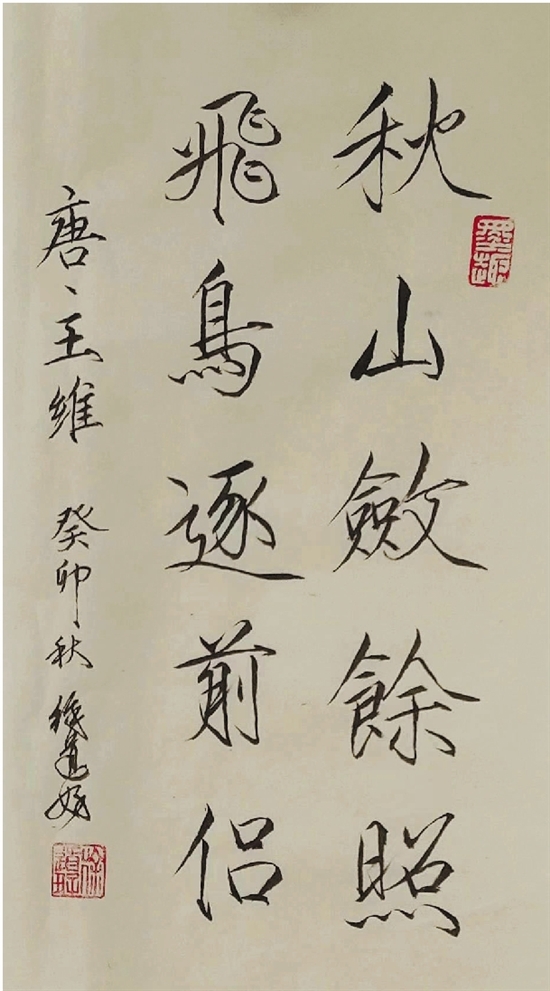 秋山斂餘照
飛鳥逐前侶
唐、王維 癸卯秋
墨趣